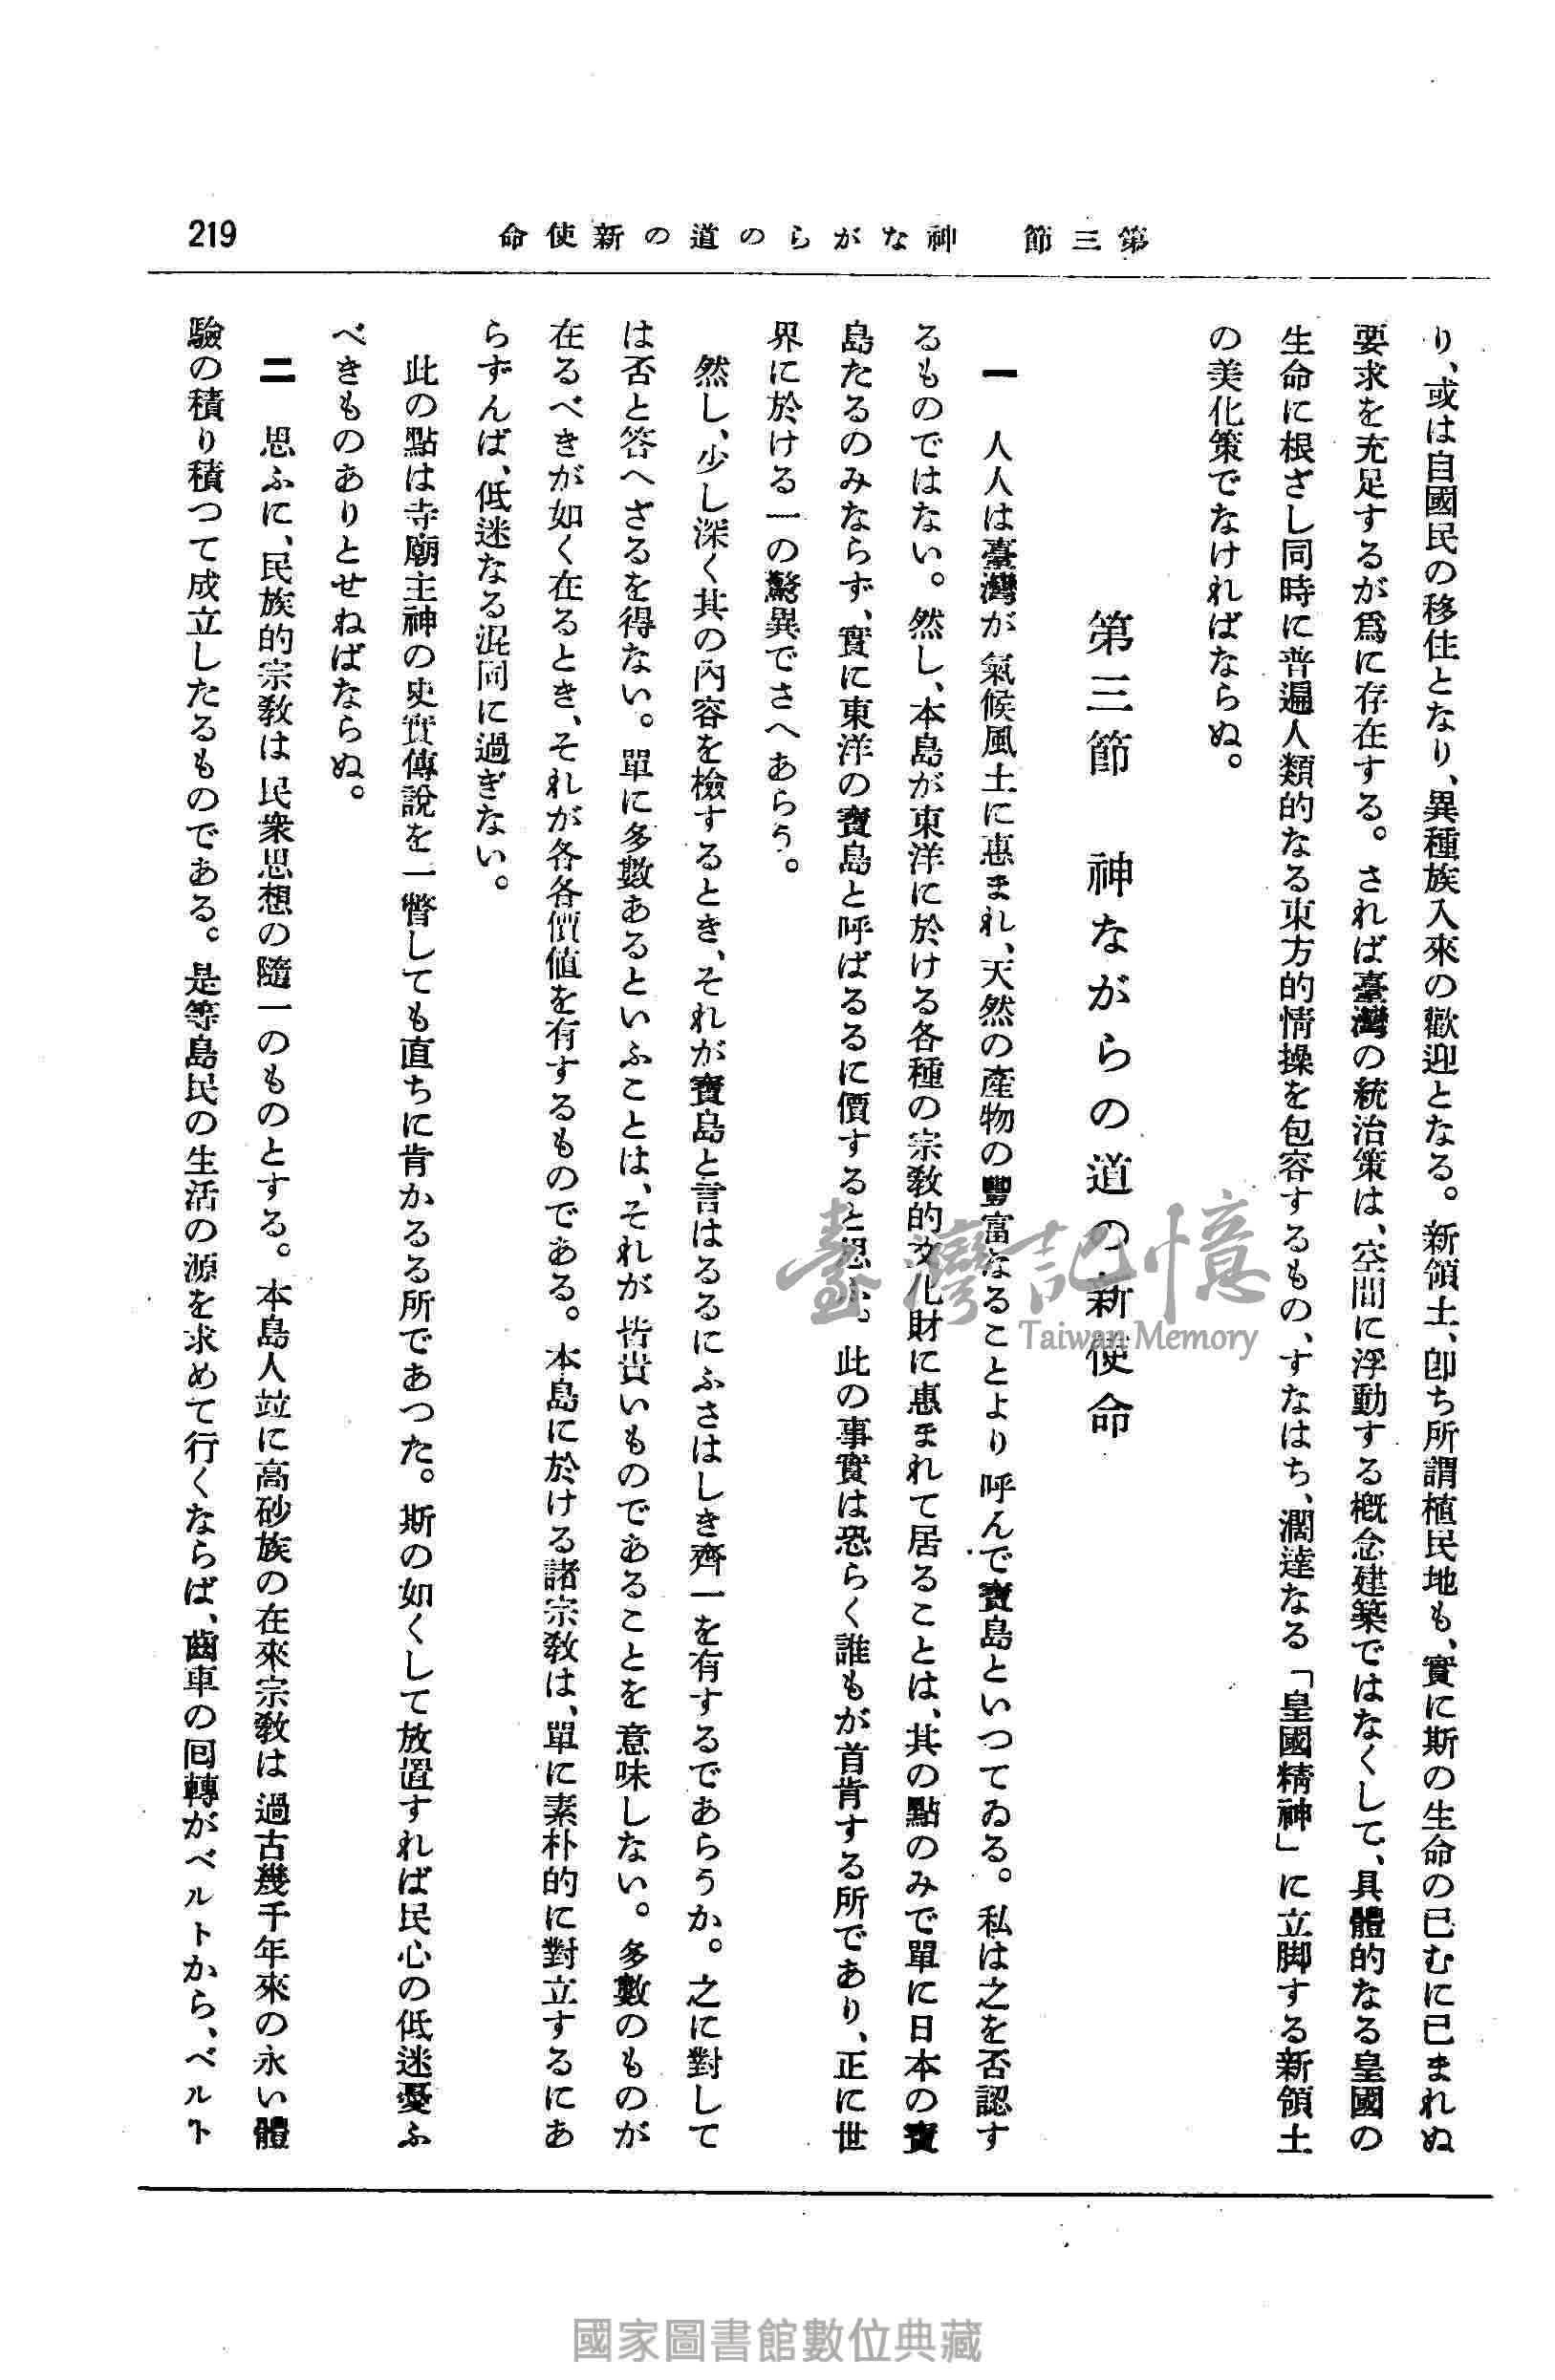 219
第三節　神ながらの道の新使命
り、或は自國民の移住となり、異種族入來の歡迎となる。新領土、卽ち所謂植民地も、實に斯の生命の已むに已まれぬ
要求を充足するが爲に存在する。されば臺灣の統治策は、空間に浮動する槪念建築ではなくして、具體的なる皇國の
生命に根ざし同時に普遍人類的なる東方的情操を包容するもの、すなはち、濶達なる「皇國精神」に立脚する新領土
の美化策でなければならぬ。
第三節　神ながらの道の新使命
一　人人は臺灣が氣候風土に惠まれ、天然の產物の豐富なることより呼んで寶島といつてゐる。私は之を否認す
るものではない。然し、本島が東洋に於ける各種の宗敎的文化財に惠まれて居ることは、其の點のみで單に日本の寶
島たるのみならず、實に東洋の寶島と呼ばるるに價すると思ふ。此の事實は恐らく誰もが首肯する所であり、正に世
界に於ける一の驚異でさへあらう。
然し、少し深く其の內容を檢するとき、それが寶島と言はるるにふさはしき齊一を有するであらうか。之に對して
は否と答へざるを得ない。單に多數あるといふことは、それが皆貴いものであることを意味しない。多數のものが
在るべきが如く在るとき、それが各各價値を有するものである。本島に於ける諸宗敎は、單に素朴的に對立するにあ
らずんば、低迷なる混同に過ぎない。
此の點は寺廟主神の史實傳說を一瞥しても直ちに肯かるる所であつた。斯の如くして放置すれば民心の低迷憂ふ
べきものありとせねばならぬ。
二　思ふに、民族的宗敎は民衆思想の隨一のものとする。本島人竝に高砂族の在來宗敎は過古幾千年來の永い體
驗の積り積つて成立したるものである。是等島民の生活の源を求めて行くならば、齒車の囘轉がベルトから、ベルト
臺灣記憶
Taiwan Memory
國家圖書館數位典藏